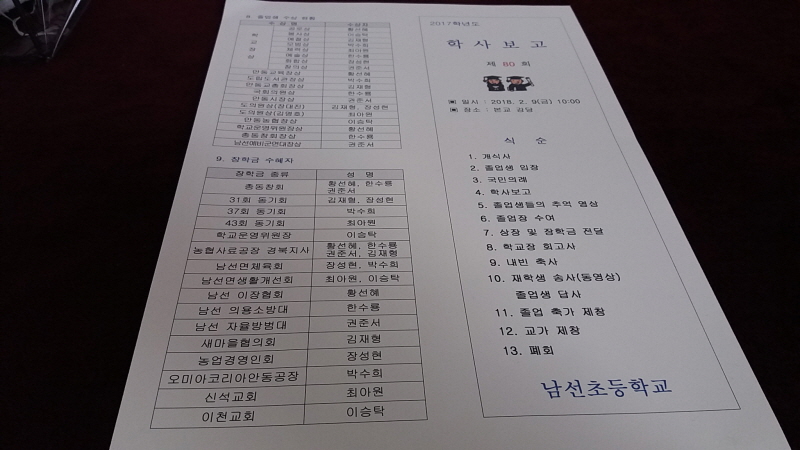 8. 졸업생 수상 현황
수 상 명 수상자
학교장상
황선혜
이승탁
김재형
박수희
최아원
한수룡
장성현
권준서
안동교육장상 황선혜
도립도서관장상 박수희
안동교총회장상 김재형
국회의원상 한수룡
안동시장상 권준서
도의원상(정대진) 김재형, 장성현
도의원상(김명호) 최아원
안동농협장상 이승탁
학교운영위원장상 황선혜
총동창회장상 한수룡
남선예비군면대장상 권준서
9. 장학금 수혜자
장학금 종류 성 명
총동창회 황선혜, 한수룡
권준서
31회 동기회 김재형, 장성현
37회 동기회 박수희
43회 동기회 최아원
학교운영위원장 이승탁
농협사료공장 경북지사 황선혜, 한수룡
권준서, 김재형
남선면체육회 장성현, 박수희
남선면생활개선회 최아원, 이승탁
남선 이장협회 황선혜
남선 의용소방대 한수룡
남선 자율방범대 권준서
새마을협의회 김재형
농업경영인회 장성현
오미아코리아안동공장 박수희
신석교회 최아원
이천교회 이승탁
2017학년도
학 사 보 고
제 80 회
▣ 일시 : 2018. 2. 9(금) 10:00
▣ 장소 : 본교 강당
식 순
1. 개식사
2. 졸업생 입장
3. 국민의례
4. 학사보고
5. 졸업생들의 추억 영상
6. 졸업장 수여
7. 상장 및 장학금 전달
8. 학교장 회고사
9. 내빈 축사
10. 재학생 송사(동영상)
졸업생 답사
11. 졸업 축가 제창
12. 교가 제창
13. 폐회
남선초등학교